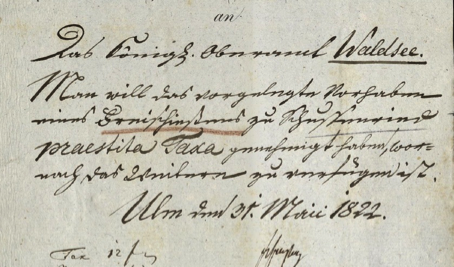 an
Das Königl. Oberamt Waldsee.
Man will das vorgelegte Vorhaben
eines Freischießens zu Schussenried
praestita Taxa genehmigt haben, wor-
nach das Weitere zu verfügen ist.
Ulm den 31. Maii 1822.
Tax 12 f